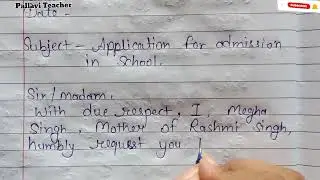 Pallavi Teacher
Date -
Subject - Application for admission
in School.
Sir/madam,
With due respect, I, Megha
Singh, Mother of Rashmi Singh,
humbly request you